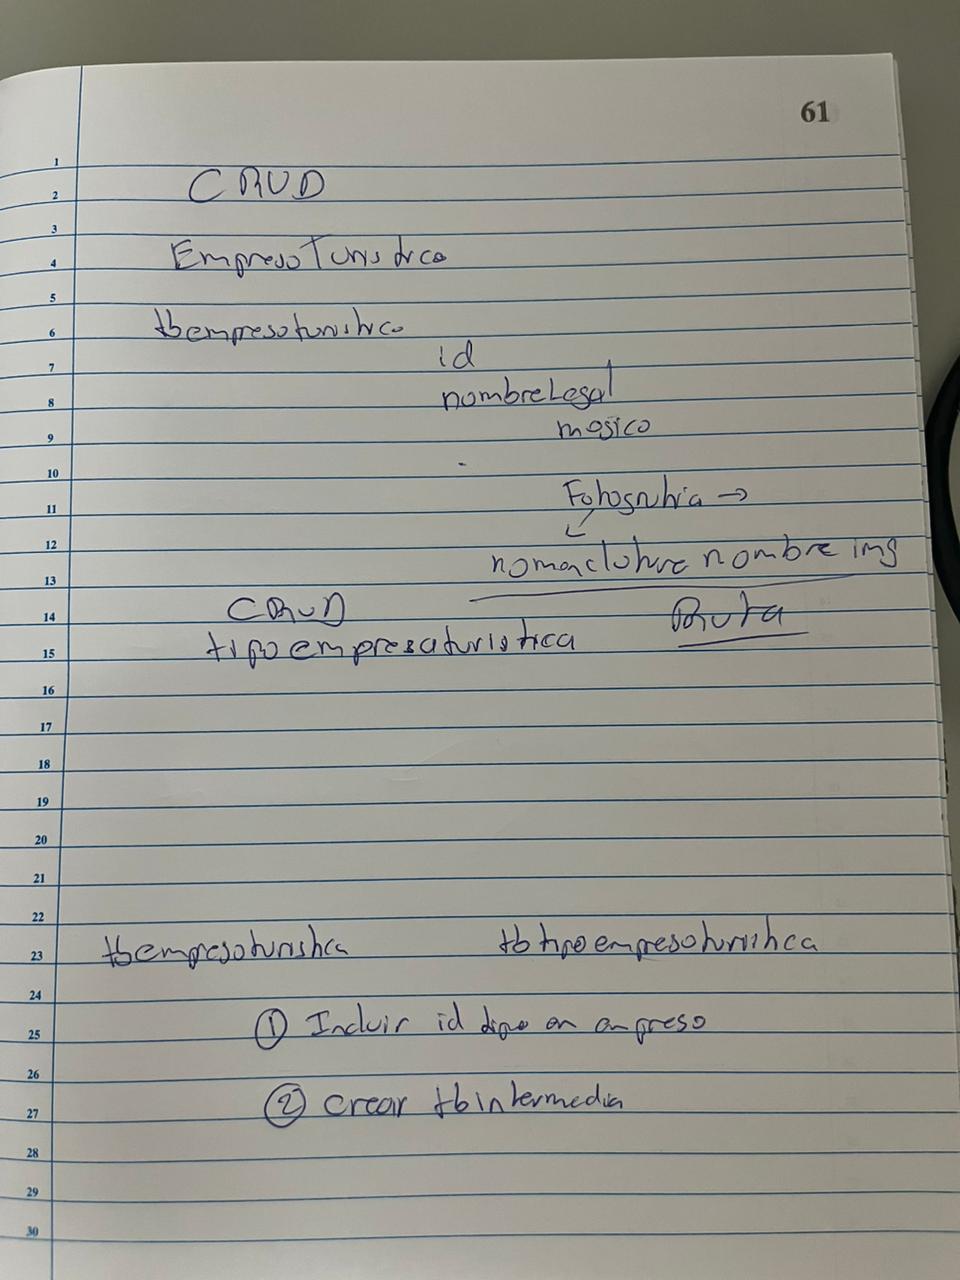 61
1
2 CRUD
3
4 EmpresaTuristica
5
6 tbempresaturistica
7 id
8 nombreLegal
9 magico
10
11 Fotografia →
12 nomenclatura nombre img
13
14 CRUD Ruta
15 tipoempresaturistica
16
17
18
19
20
21
22
23 tbempresaturistica tbtipoempresaturistica
24
25 ① Incluir id tipo en empresa
26
27 ② crear tbintermedia
28
29
30